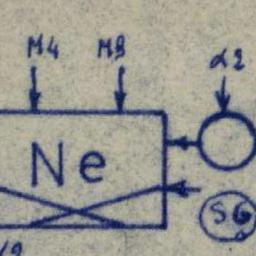 M4 M8 α2
Ne
S6